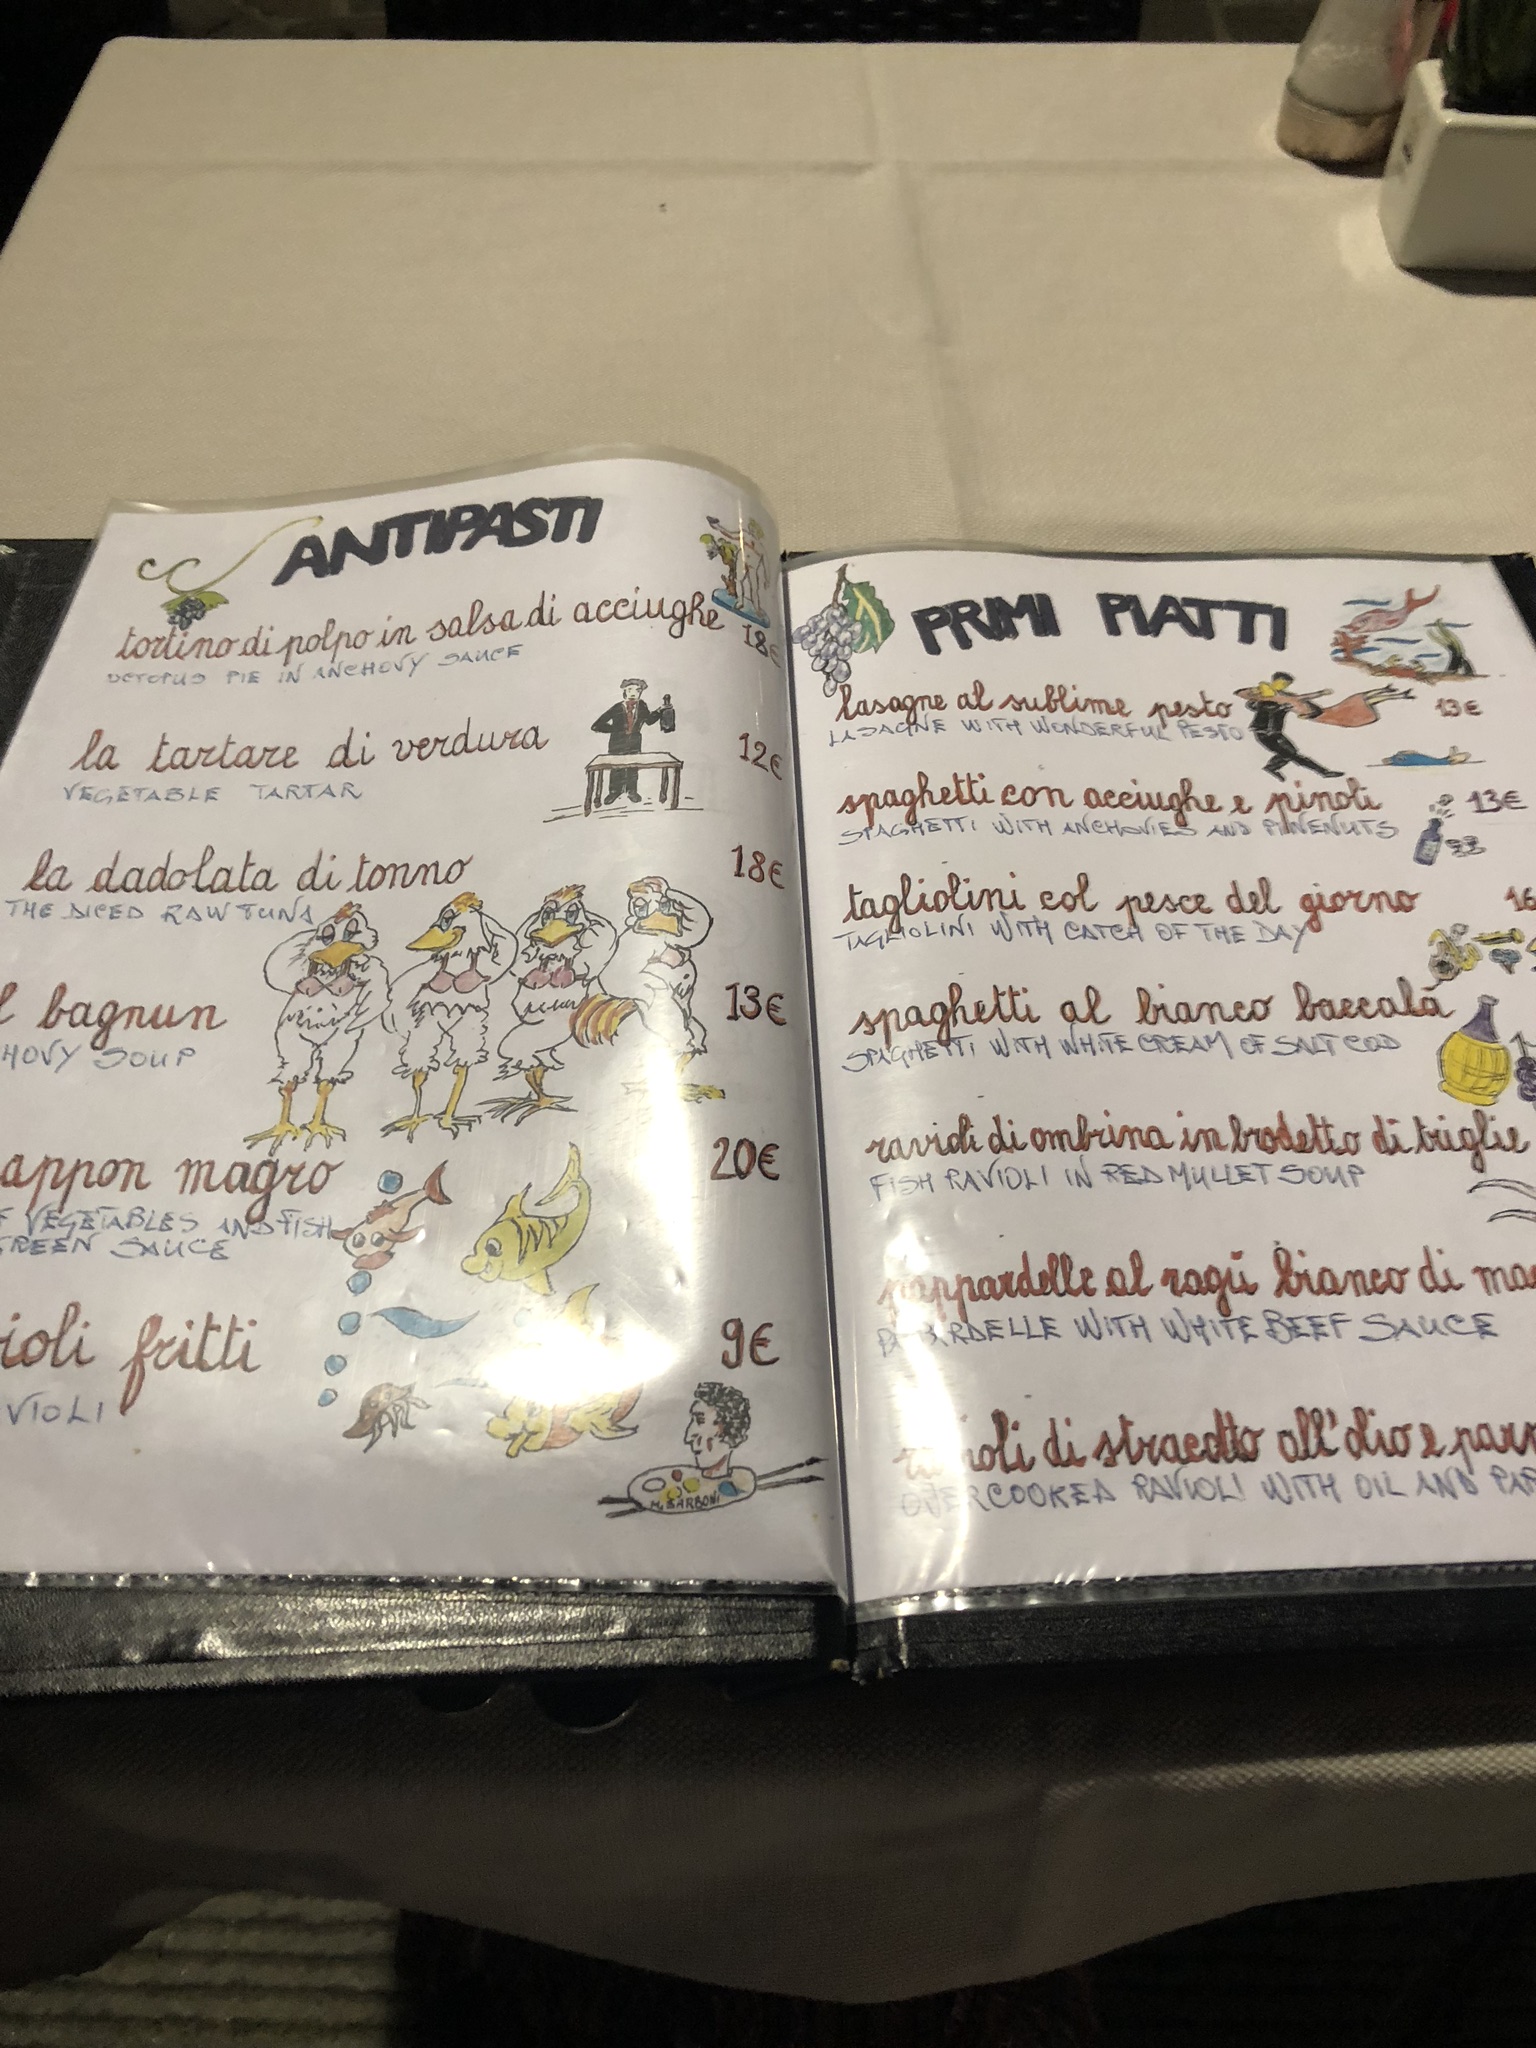 ANTIPASTI
tortino di polpo in salsa di acciughe
18€
OCTOPUS PIE IN ANCHOVY SAUCE
la tartare di verdura
12€
VEGETABLE TARTAR
la dadolata di tonno
18€
THE DICED RAW TUNA
bagnun
13€
SOUP
magro
20€
VEGETABLES AND FISH
SAUCE
fritti
9€
M. BARBONI
PRIMI PIATTI
lasagne al sublime pesto
13€
LASAGNE WITH WONDERFUL PESTO
spaghetti con acciughe e pinoli
13€
SPAGHETTI WITH ANCHOVIES AND PINENUTS
tagliolini col pesce del giorno
16
TAGLIOLINI WITH CATCH OF THE DAY
spaghetti al bianco baccalà
SPAGHETTI WITH WHITE CREAM OF SALT COD
ravioli di ombrina in brodetto di triglie
FISH RAVIOLI IN RED MULLET SOUP
pappardelle al ragù bianco di
WITH WHITE BEEF SAUCE
di stracotto all'olio e
OVERCOOKED RAVIOLI WITH OIL AND